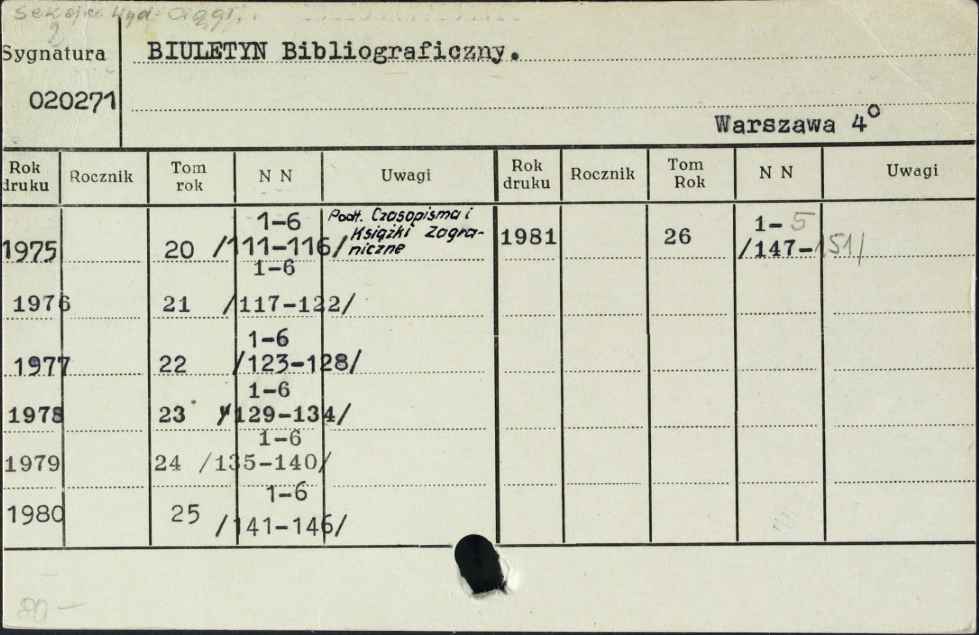 Sygnatura
BIULETYN Bibliograficzny.
020271
Warszawa 4°
Rok druku Rocznik Tom rok N N Uwagi Rok druku Rocznik Tom Rok N N Uwagi
1975 20 1-6 /111-116/ Podt. Czasopisma i Książki Zagraniczne 1981 26 1-5 /147-151/
1976 21 1-6 /117-122/
1977 22 1-6 /123-128/
1978 23 1-6 /129-134/
1979 24 1-6 /135-140/
1980 25 1-6 /141-146/
80-